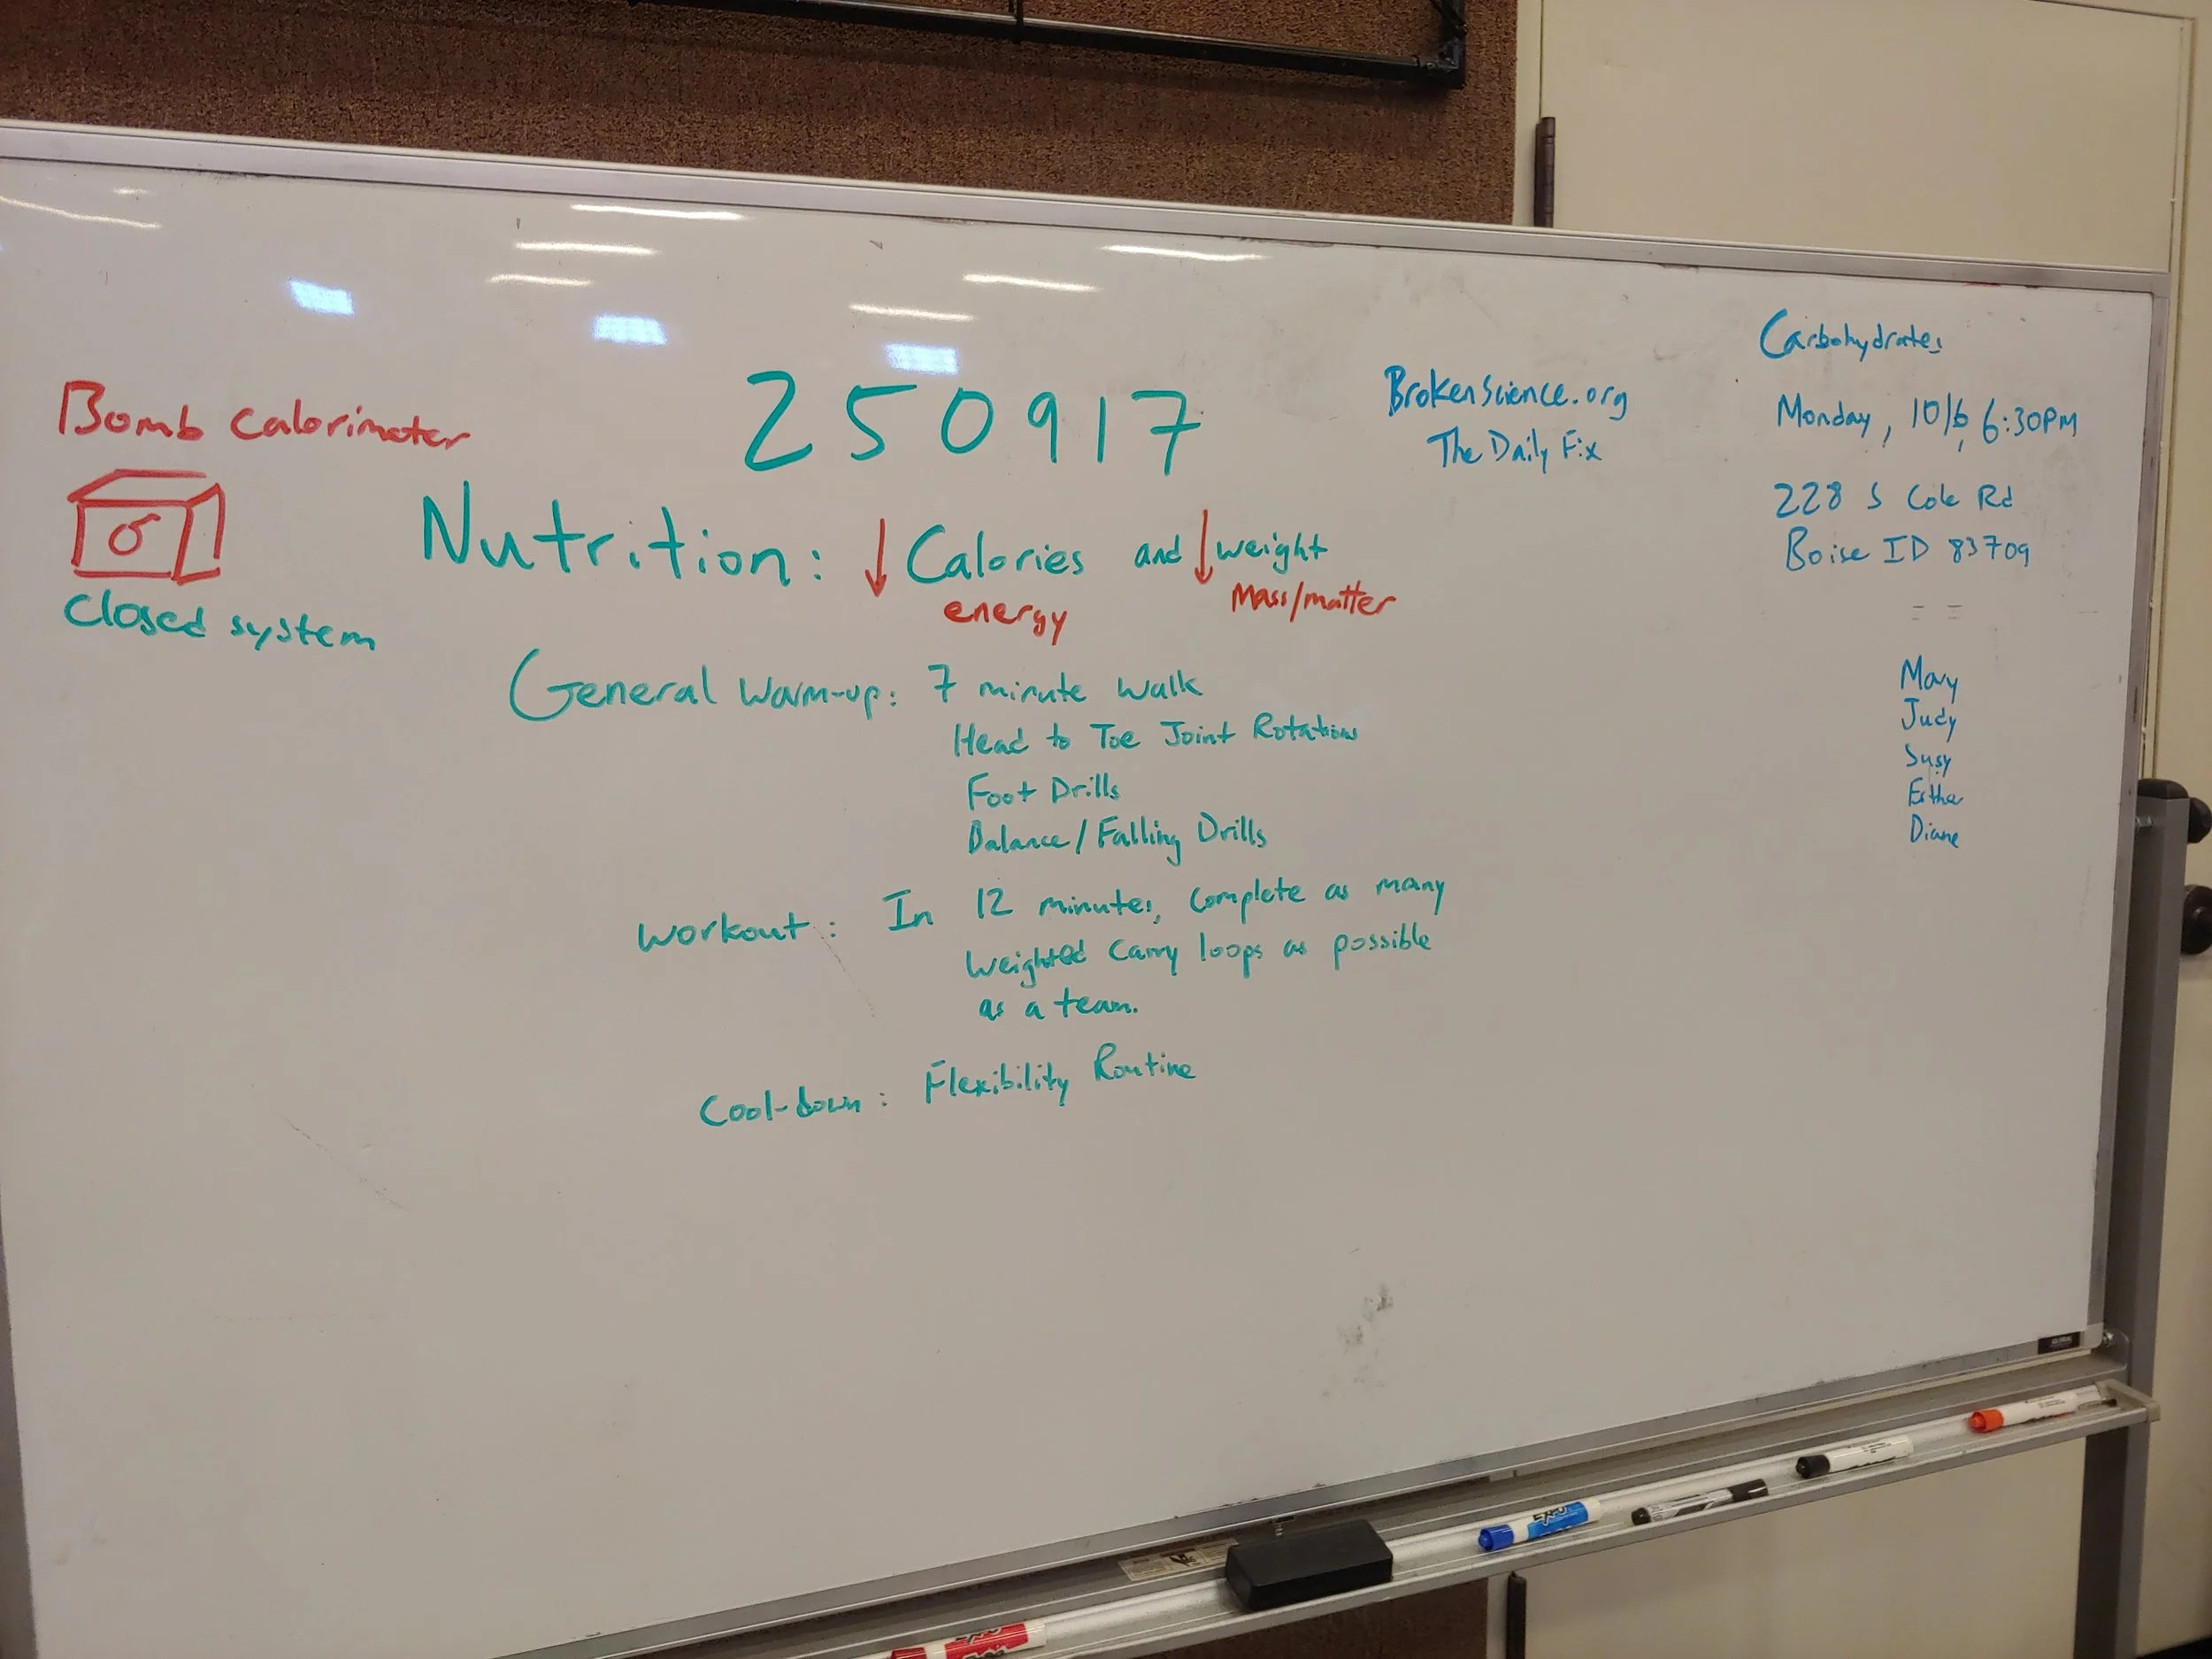 Bomb Calorimeter
Closed system
250917
Nutrition: ↓ Calories and ↓ weight
energy
Mass/matter
General Warm-up: 7 minute walk
Head to Toe Joint Rotations
Foot Drills
Balance/Falling Drills
Workout: In 12 minutes, complete as many
weighted carry loops as possible
as a team.
Cool-down: Flexibility Routine
BrokenScience.org
The Daily Fix
Carbohydrates
Monday, 10/6, 6:30PM
228 S Cole Rd
Boise ID 83709
= =
Judy
Susy
Diane
EXPO
EXPO
GLOBAL